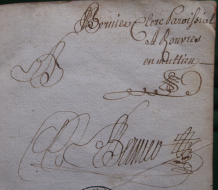 Bernier Clerc paroissial
A Rouvres
en multien
Bernier